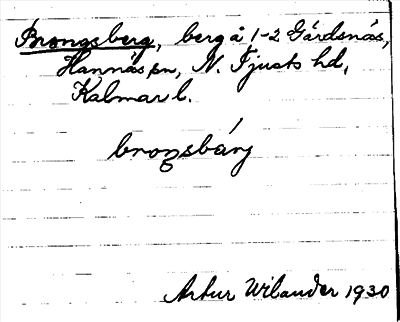 Brongsberg, berg å 1-2 Gårdsnäs,
Hannäs sn, N. Tjusts hd,
Kalmar l.
broŋsbärj
Artur Wilander 1930